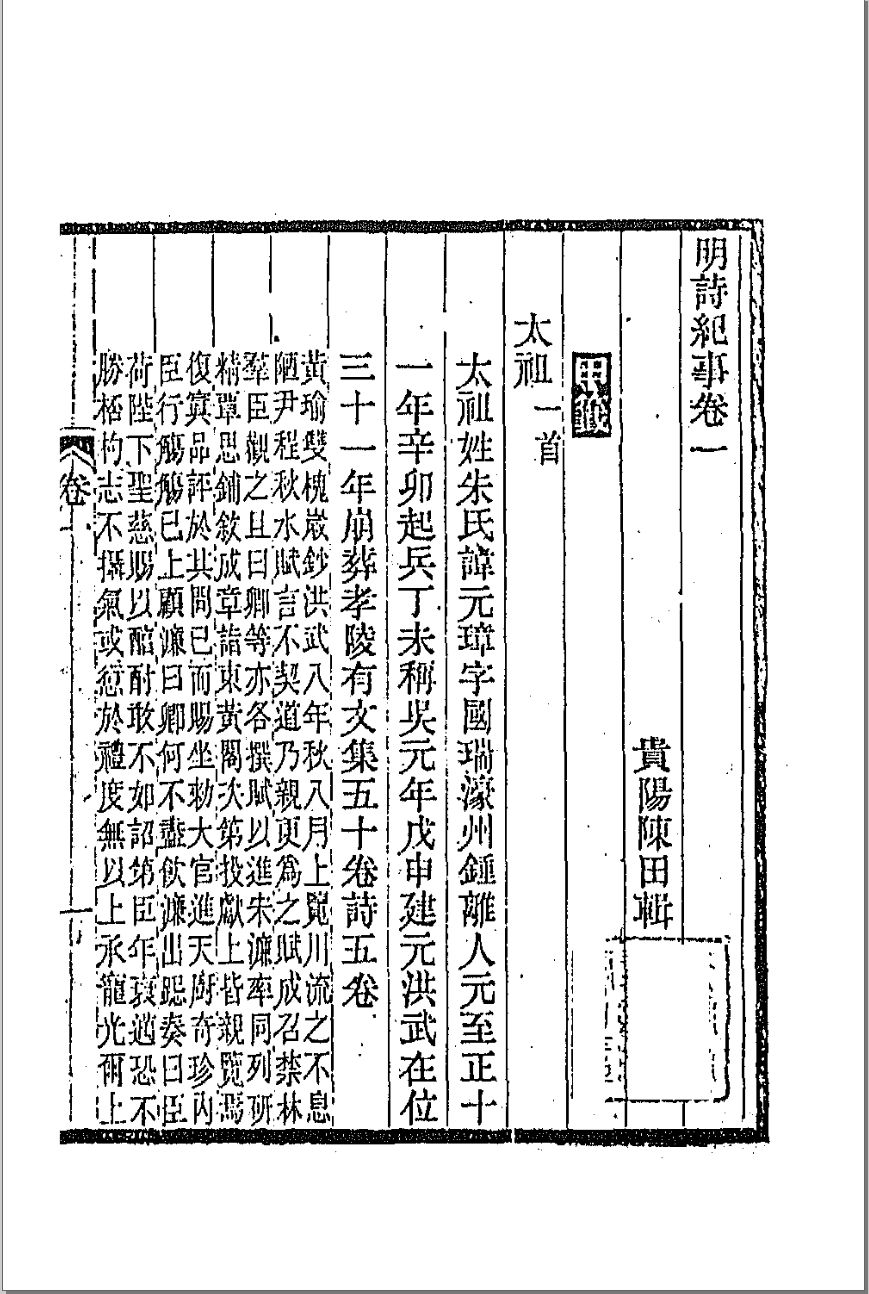 明詩紀事卷一
貴陽陳田輯
甲籤
太祖一首
太祖姓朱氏諱元璋字國瑞濠州鍾離人元至正十
一年辛卯起兵丁未稱吳元年戊申建元洪武在位
三十一年崩葬孝陵有文集五十卷詩五卷
黃瑜雙槐歲鈔洪武八年秋八月上覽川流之不息
陋尹程秋水賦言不契道乃親更爲之賦成召禁林
羣臣觀之且曰卿等亦各撰賦以進宋濂率同列研
精覃思鋪敘成章詣東黃閣次第投獻上皆親覽焉
復寘品評於其間已而賜坐勑大官進天廚奇珍內
臣行觴觴已上顧濂曰卿何不盡飲濂出跽奏曰臣
荷陛下聖慈賜以醅酎敢不如詔第臣年衰邁恐不
勝桮杓志不攝氣或愆於禮度無以上承寵光爾上
卷一
一